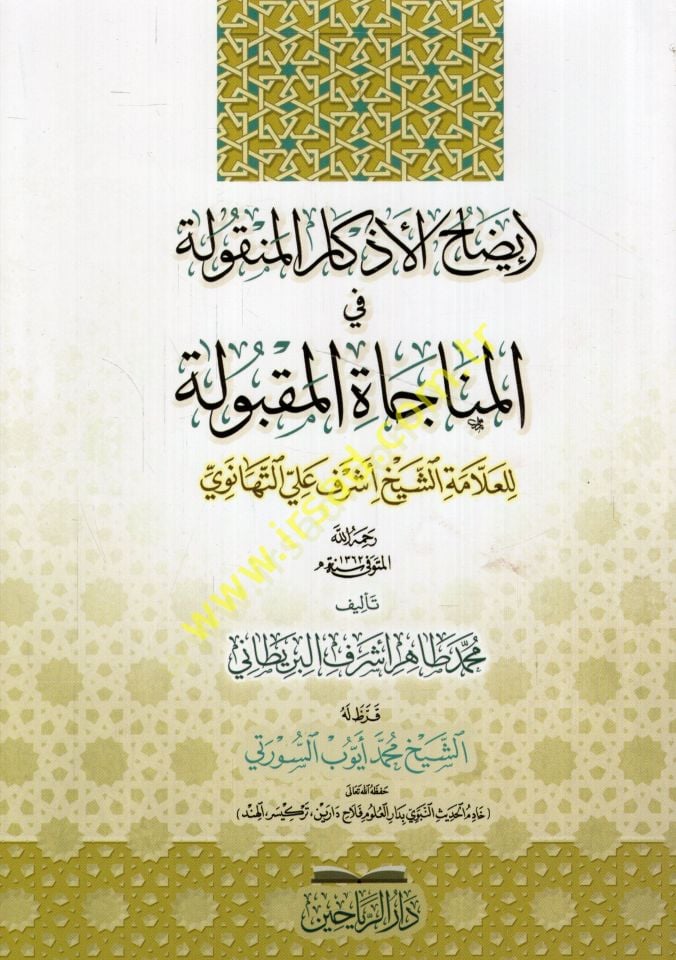 إيضاح الأذكار المنقولة
في
المناجاة المقبولة
للعلامة الشيخ أشرف علي التهانوي
رحمه الله
المتوفى سنة ١٣٦٢ هـ
تأليف
محمد طاهر أشرف البريطاني
قرظ له
الشيخ محمد أيوب السورتي
حفظه الله تعالى
(خادم الحديث النبوي بدار العلوم فلاح دارين، تركيسر، الهند)
دار الرياحين
www.irsad.com.tr